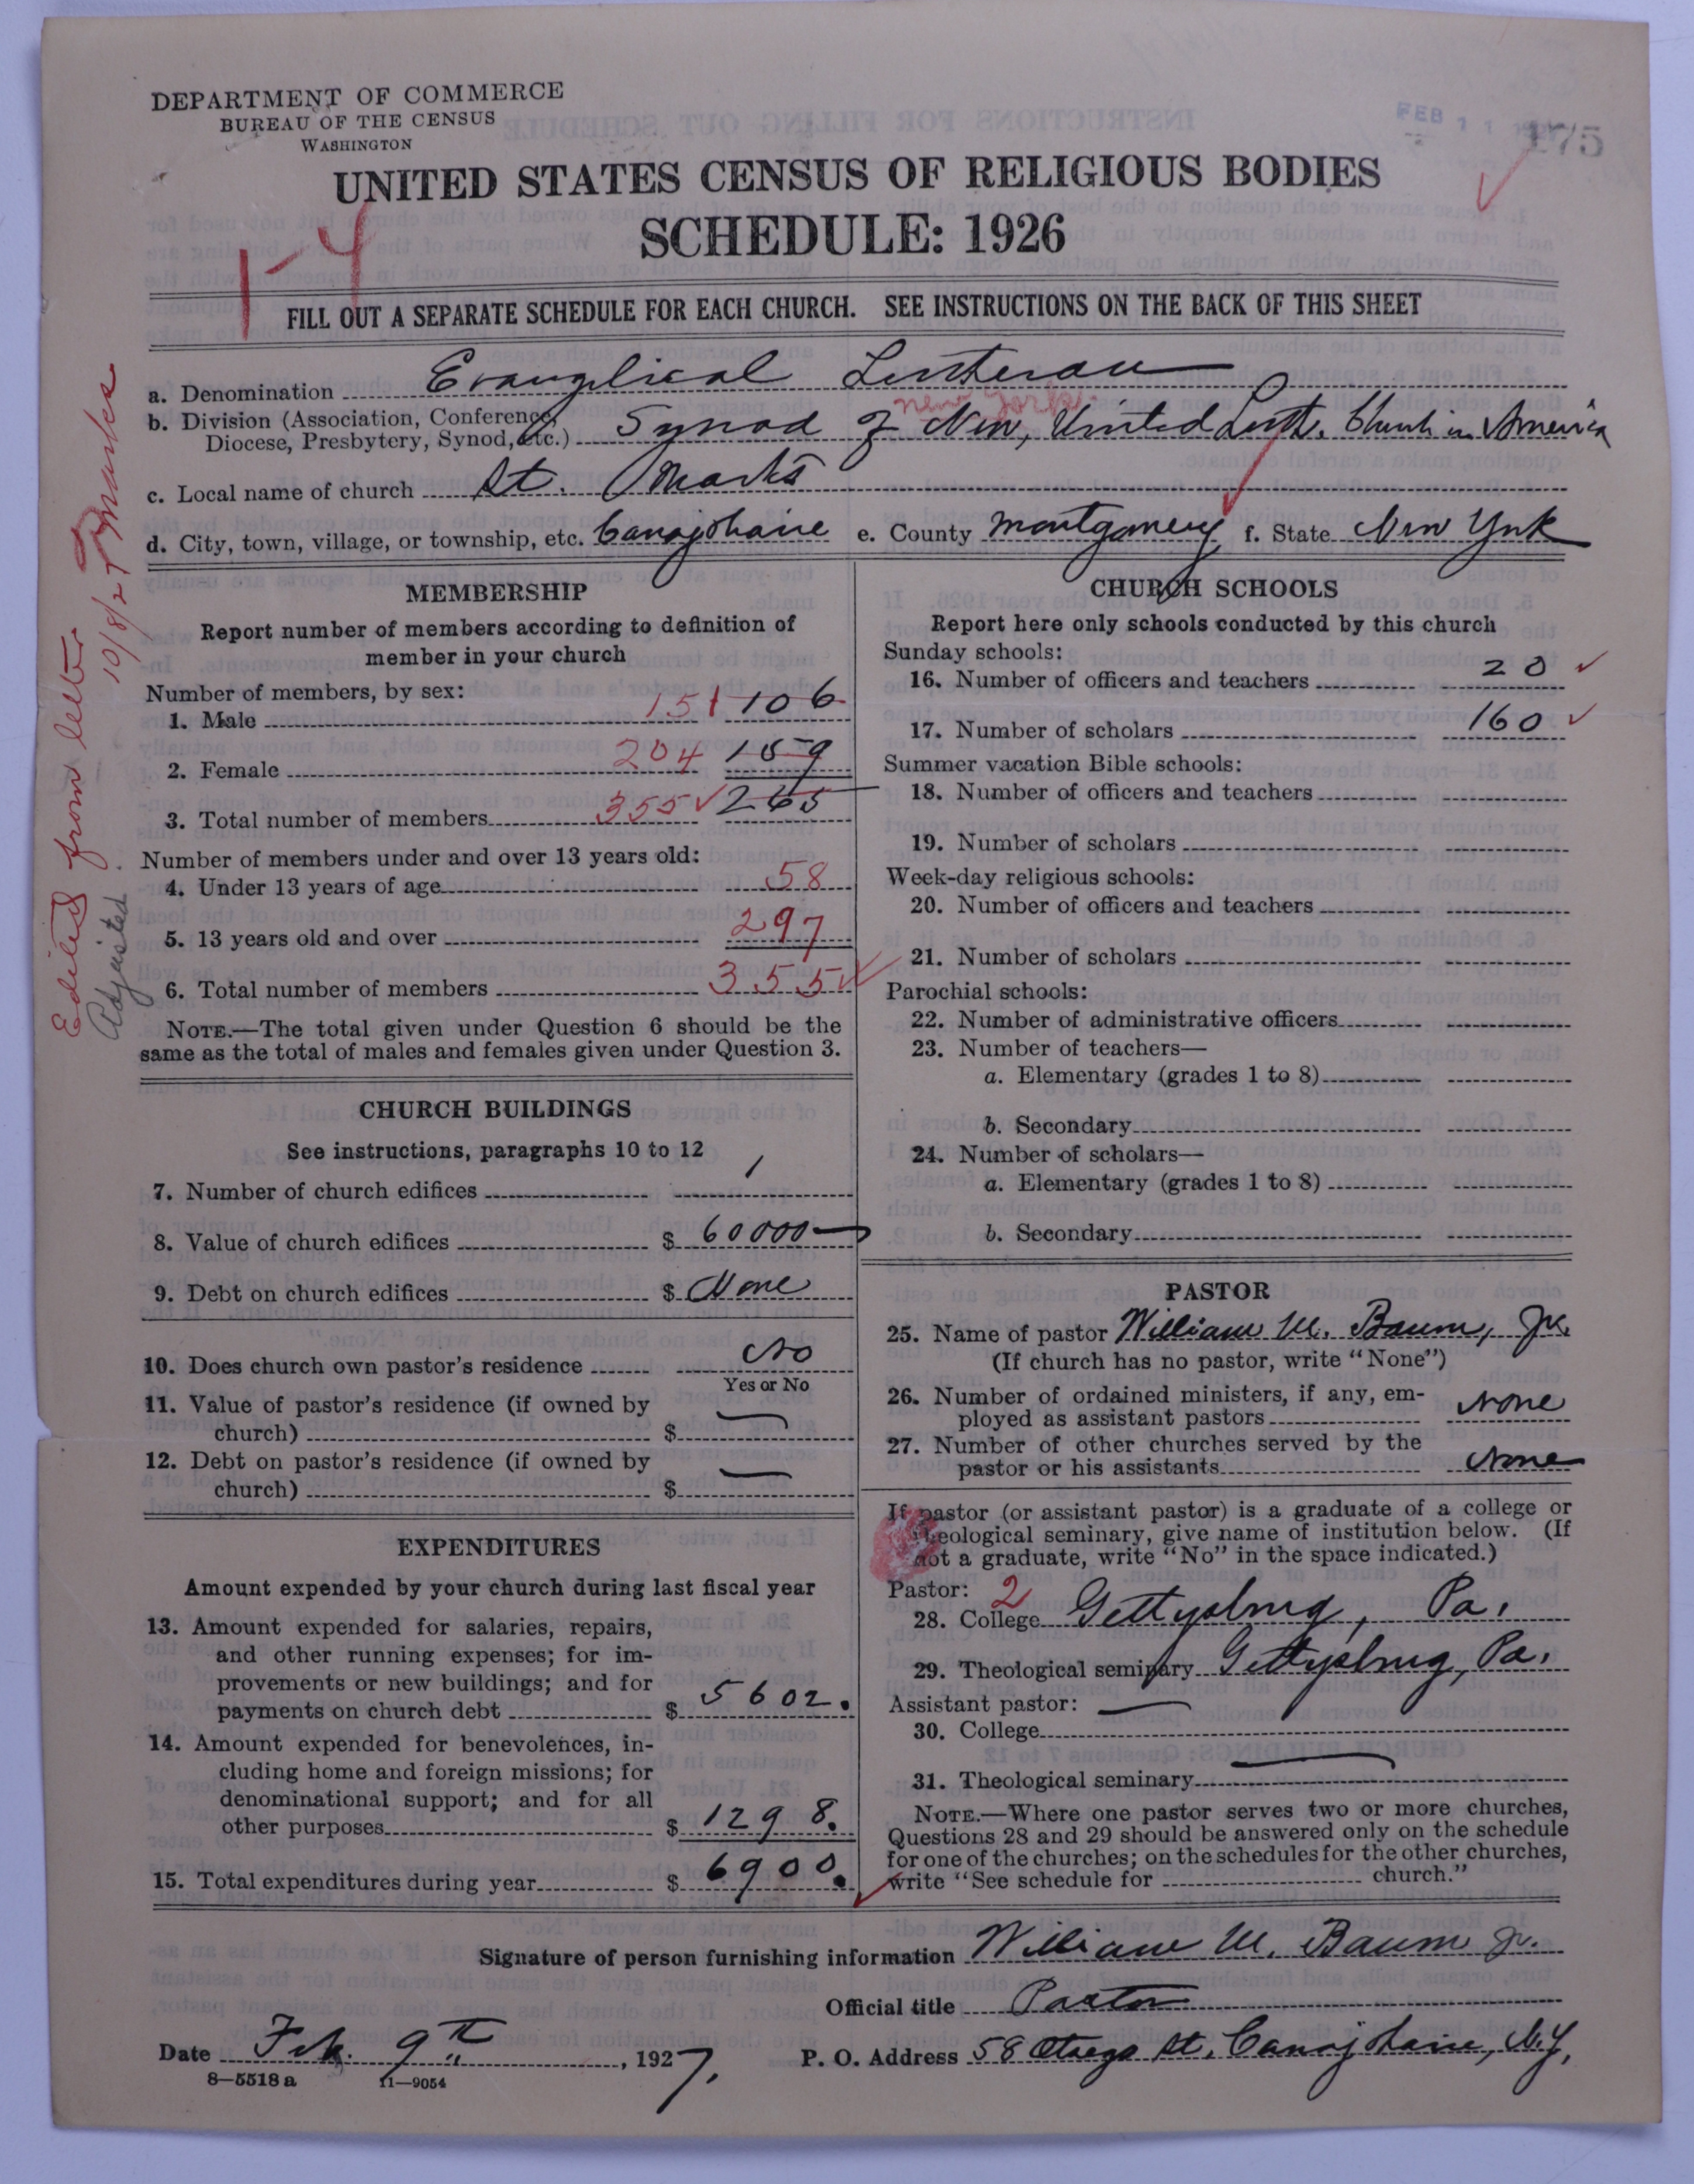 DEPARTMENT OF COMMERCE
BUREAU OF THE CENSUS
WASHINGTON
FEB 11
175
UNITED STATES CENSUS OF RELIGIOUS BODIES
SCHEDULE: 1926
1-4
FILL OUT A SEPARATE SCHEDULE FOR EACH CHURCH. SEE INSTRUCTIONS ON THE BACK OF THIS SHEET
a. Denomination Evangelical Lutheran
New York
b. Division (Association, Conference, Diocese, Presbytery, Synod, etc.) Synod of New, United Luth. Church in America
c. Local name of church St. Marks
d. City, town, village, or township, etc. Canajoharie e. County Montgomery f. State New York
Edited from letter
10/8/27
Adjusted
MEMBERSHIP
Report number of members according to definition of
member in your church
Number of members, by sex:
1. Male 151 106
2. Female 204 159
3. Total number of members 355 265
Number of members under and over 13 years old:
4. Under 13 years of age 58
5. 13 years old and over 297
6. Total number of members 355
NOTE.—The total given under Question 6 should be the
same as the total of males and females given under Question 3.
CHURCH BUILDINGS
See instructions, paragraphs 10 to 12
7. Number of church edifices 1
8. Value of church edifices $ 60000
9. Debt on church edifices $ None
10. Does church own pastor's residence No
Yes or No
11. Value of pastor's residence (if owned by
church) $ —
12. Debt on pastor's residence (if owned by
church) $ —
EXPENDITURES
Amount expended by your church during last fiscal year
13. Amount expended for salaries, repairs,
and other running expenses; for im-
provements or new buildings; and for
payments on church debt $ 5602.
14. Amount expended for benevolences, in-
cluding home and foreign missions; for
denominational support; and for all
other purposes $ 1298.
15. Total expenditures during year $ 6900.
CHURCH SCHOOLS
Report here only schools conducted by this church
Sunday schools:
16. Number of officers and teachers 20
17. Number of scholars 160
Summer vacation Bible schools:
18. Number of officers and teachers
19. Number of scholars
Week-day religious schools:
20. Number of officers and teachers
21. Number of scholars
Parochial schools:
22. Number of administrative officers
23. Number of teachers—
a. Elementary (grades 1 to 8)
b. Secondary
24. Number of scholars—
a. Elementary (grades 1 to 8)
b. Secondary
PASTOR
25. Name of pastor William M. Baum, Jr.
(If church has no pastor, write "None")
26. Number of ordained ministers, if any, em-
ployed as assistant pastors None
27. Number of other churches served by the
pastor or his assistants None
If pastor (or assistant pastor) is a graduate of a college or
theological seminary, give name of institution below. (If
not a graduate, write "No" in the space indicated.)
Pastor: 2
28. College Gettysburg, Pa.
29. Theological seminary Gettysburg, Pa.
Assistant pastor: —
30. College
31. Theological seminary —
NOTE.—Where one pastor serves two or more churches,
Questions 28 and 29 should be answered only on the schedule
for one of the churches; on the schedules for the other churches,
write "See schedule for church."
Signature of person furnishing information William M. Baum Jr.
Official title Pastor
Date Feb. 9th, 1927. P. O. Address 58 Otsego St. Canajoharie, N.Y.
8—5518 a 11—9054